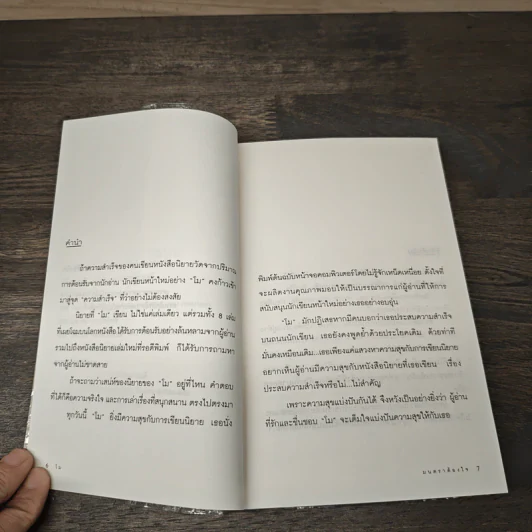 คำนำ
ถ้าความสำเร็จของคนเขียนหนังสือนิยายวัดจากปริมาณ
การต้อนรับจากนักอ่าน นักเขียนหน้าใหม่อย่าง "โม" คงก้าวเข้า
มาสู่จุด "ความสำเร็จ" ที่ว่าอย่างไม่ต้องสงสัย
นิยายที่ "โม" เขียน ไม่ใช่แค่เล่มเดียว แต่รวมทั้ง 8 เล่ม
ที่เผยโฉมบนโลกหนังสือ ได้รับการต้อนรับอย่างล้นหลามจากผู้อ่าน
รวมไปถึงหนังสือนิยายเล่มใหม่ที่รอตีพิมพ์ ก็ได้รับการถามหา
จากผู้อ่านไม่ขาดสาย
ถ้าจะถามว่าเสน่ห์ของนิยายของ "โม" อยู่ที่ไหน คำตอบ
ที่ได้ก็คือความจริงใจ และการเล่าเรื่องที่สนุกสนาน ตรงไปตรงมา
ทุกวันนี้ "โม" ยังมีความสุขกับการเขียนนิยาย เธอนั่ง
6 โม
พิมพ์ต้นฉบับหน้าจอคอมพิวเตอร์โดยไม่รู้จักเหนื่อย ตั้งใจที่
จะผลิตงานคุณภาพมอบให้เป็นบรรณาการแก่ผู้อ่านที่ให้การ
สนับสนุนนักเขียนหน้าใหม่อย่างเธออย่างอบอุ่น
"โม" มักปฏิเสธหากมีคนบอกว่าเธอประสบความสำเร็จ
บนถนนนักเขียน เธอยังคงพูดย้ำด้วยประโยคเดิม ด้วยท่าที
มั่นคงเหมือนเดิม...เธอเพียงแค่แสวงหาความสุขกับการเขียนนิยาย
อยากเห็นผู้อ่านมีความสุขกับหนังสือนิยายที่เธอเขียน เรื่อง
ประสบความสำเร็จหรือไม่...ไม่สำคัญ
เพราะความสุขแบ่งปันกันได้ จึงหวังเป็นอย่างยิ่งว่า ผู้อ่าน
ที่รักและชื่นชอบ "โม" จะเต็มใจแบ่งปันความสุขให้กับเธอ
มนตราต้องใจ 7